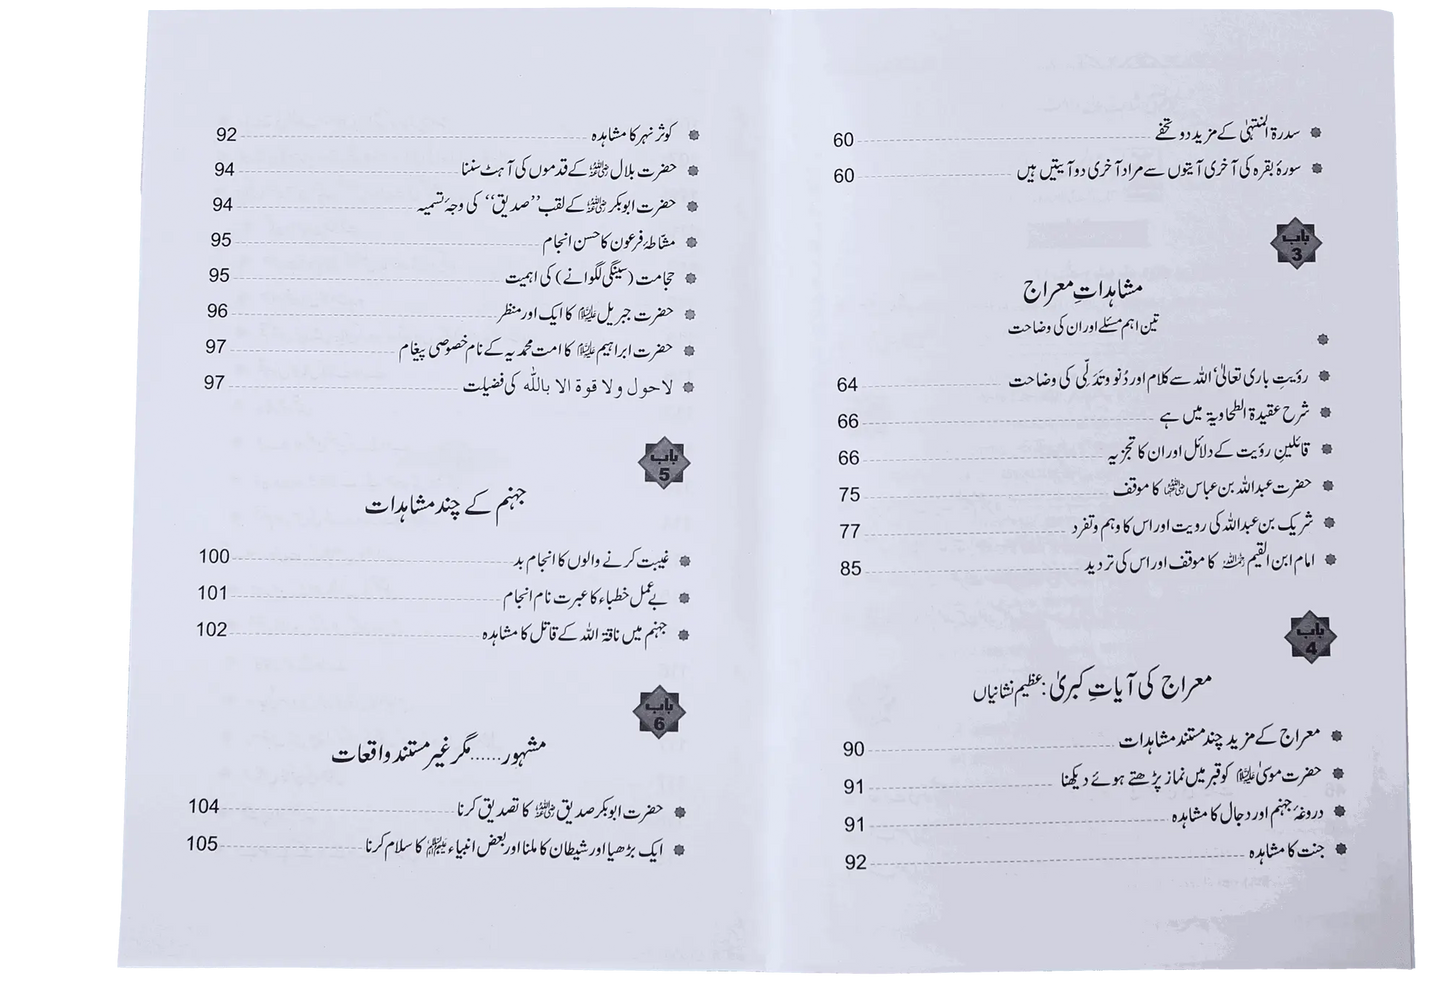 سدرۃ المنتہیٰ کے مزید دو تحفے 60
سورۂ بقرہ کی آخری آیتوں سے مراد آخری دو آیتیں ہیں 60
باب 3
مشاہداتِ معراج
تین اہم مسئلے اور ان کی وضاحت
رؤیتِ باری تعالیٰ، اللہ سے کلام اور دُنو وتَدَلّی کی وضاحت 64
شرح عقیدۃ الطحاویۃ میں ہے 66
قائلینِ رؤیت کے دلائل اور ان کا تجزیہ 66
حضرت عبداللہ بن عباس رضی اللہ عنہما کا موقف 75
شریک بن عبداللہ کی رویت اور اس کا وہم وتفرد 77
امام ابن القیم رحمہ اللہ کا موقف اور اس کی تردید 85
باب 4
معراج کی آیاتِ کبریٰ: عظیم نشانیاں
معراج کے مزید چند مستند مشاہدات 90
حضرت موسیٰ علیہ السلام کو قبر میں نماز پڑھتے ہوئے دیکھنا 91
دروغۂ جہنم اور دجال کا مشاہدہ 91
جنت کا مشاہدہ 92
کوثر نہر کا مشاہدہ 92
حضرت بلال رضی اللہ عنہ کے قدموں کی آہٹ سننا 94
حضرت ابوبکر رضی اللہ عنہ کے لقب ”صدیق“ کی وجۂ تسمیہ 94
مشّاطۂ فرعون کا حسن انجام 95
حجامت (سینگی لگوانے) کی اہمیت 95
حضرت جبریل علیہ السلام کا ایک اور منظر 96
حضرت ابراہیم علیہ السلام کا امت محمدیہ کے نام خصوصی پیغام 97
لاحول ولا قوة الا باللّٰه کی فضیلت 97
باب 5
جہنم کے چند مشاہدات
غیبت کرنے والوں کا انجام بد 100
بےعمل خطباء کا عبرت نام انجام 101
جہنم میں ناقۃ اللہ کے قاتل کا مشاہدہ 102
باب 6
مشہور......مگر غیر مستند واقعات
حضرت ابوبکر صدیق رضی اللہ عنہ کا تصدیق کرنا 104
ایک بڑھیا اور شیطان کا ملنا اور بعض انبیاء علیہم السلام کا سلام کرنا 105